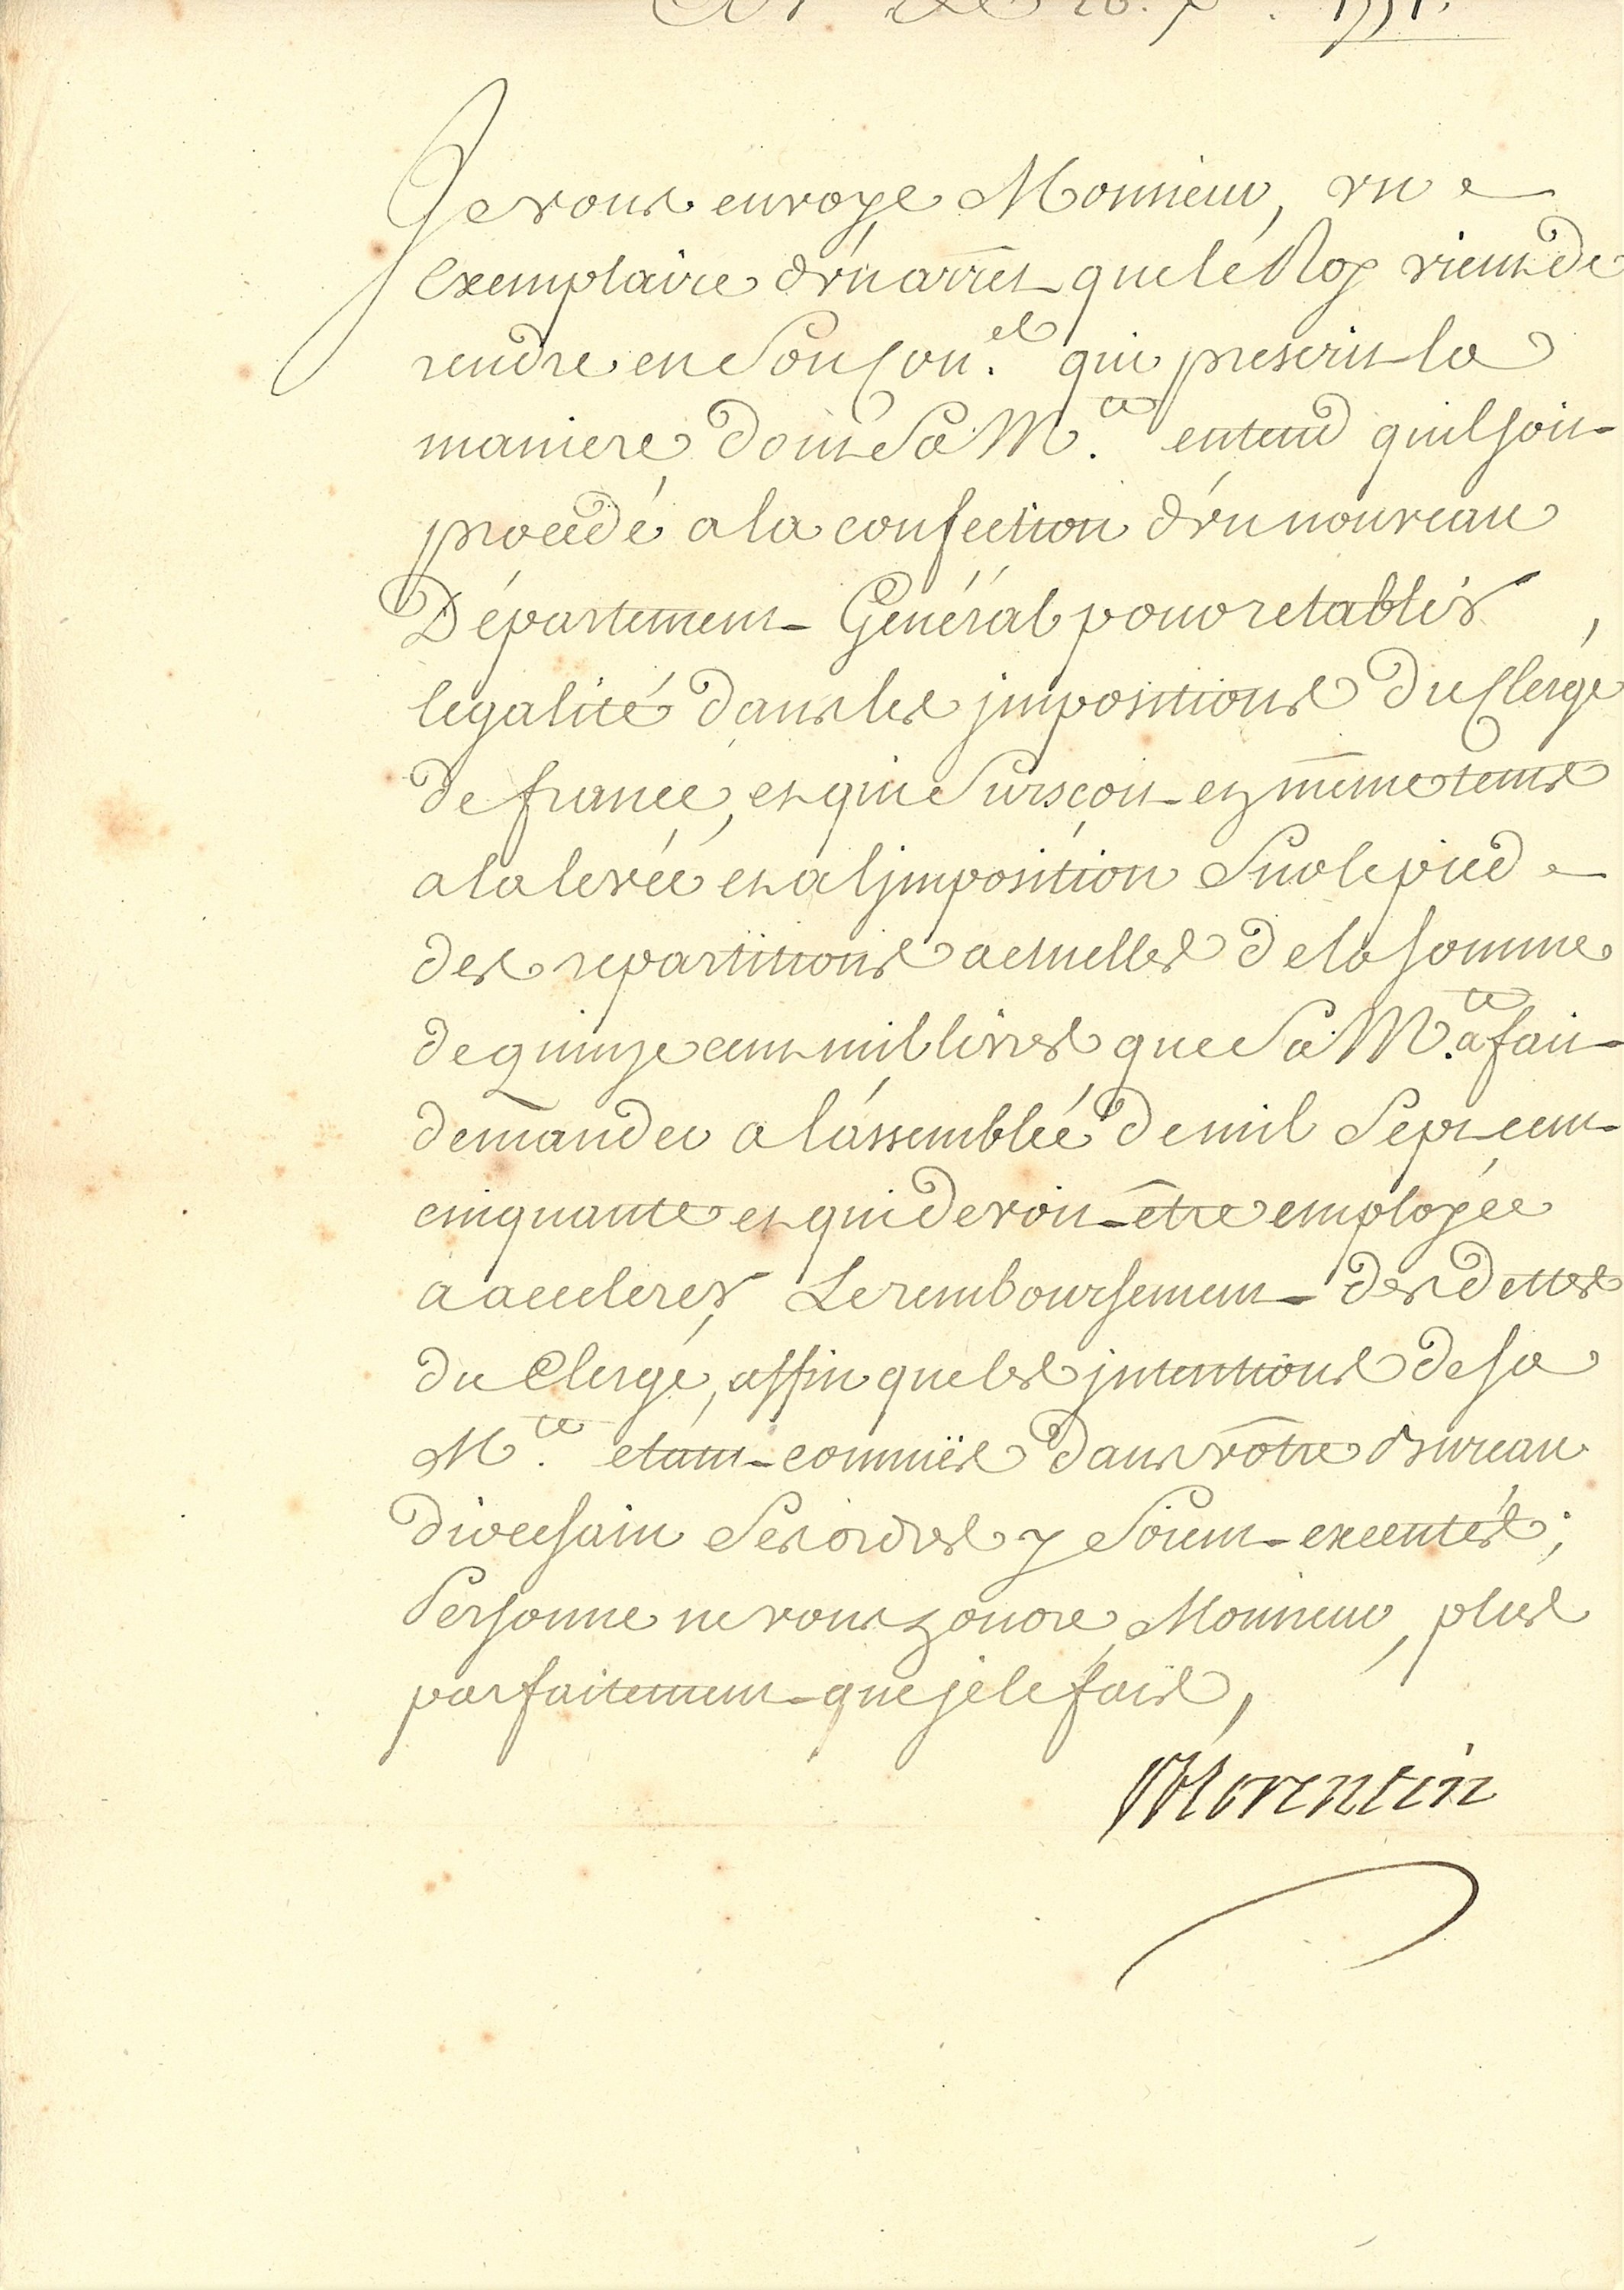 Je vous envoye Monsieur, vn
Exemplaire d'vn arrêt que le Roy vient de
rendre en Son Con.el qui prescrit la
maniere dont Sa M.té entend qu'il soit
procedé a la confection d'vn nouveau
Département Général pour retablir
legalité dans les jmpositions du Clergé
de france, et qui Surseoit en même tems
a la levée et a l'jmposition Sur le pied
des repartitions actuelles de la somme
de quinze cent mil livres que Sa M.té a fait
demander a l'assemblée de mil Sept cent
cinquante et qui devoit être employée
a accelerer Le remboursement des dettes
du Clergé, affin que les jntentions de sa
M.té etant connües dans vôtre Bureau
diocesain Ses ordres y Soient executés;
Personne ne vous honore, Monsieur, plus
parfaitement que je le fais,